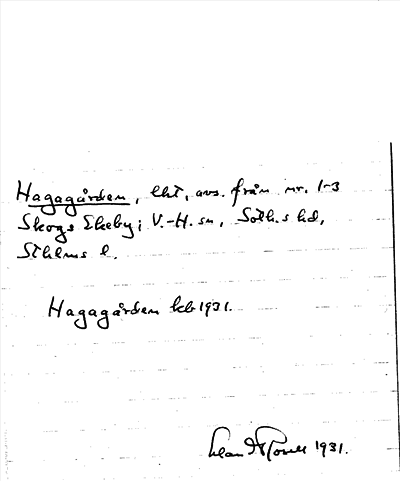 Hagagården, lht, avs. från nr. 1-3
Skogs Ekeby i V.-H. sn, Soth.s hd,
Sthlms l.
Hagagården kb 1931.
1931.